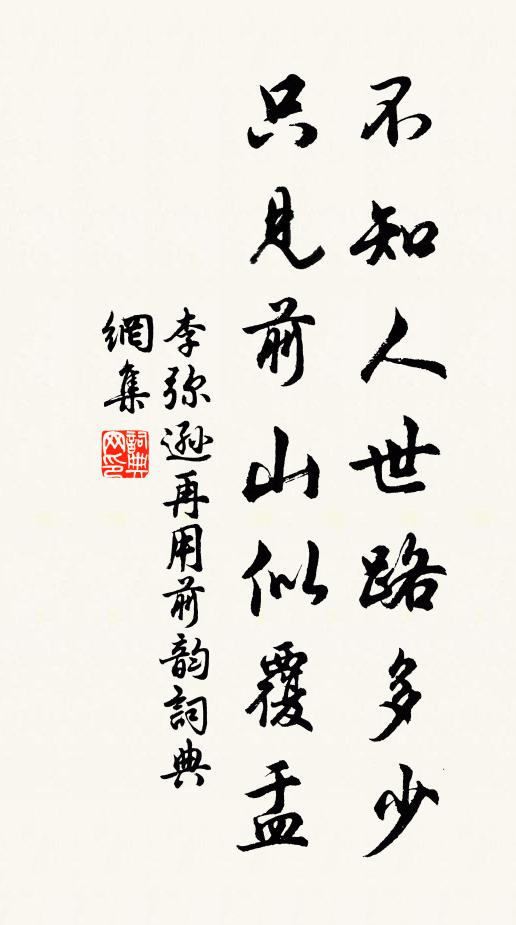 不知人世路多少
只見前山似覆盂
李弥遜再用前韵詞典
網集
詞典網印